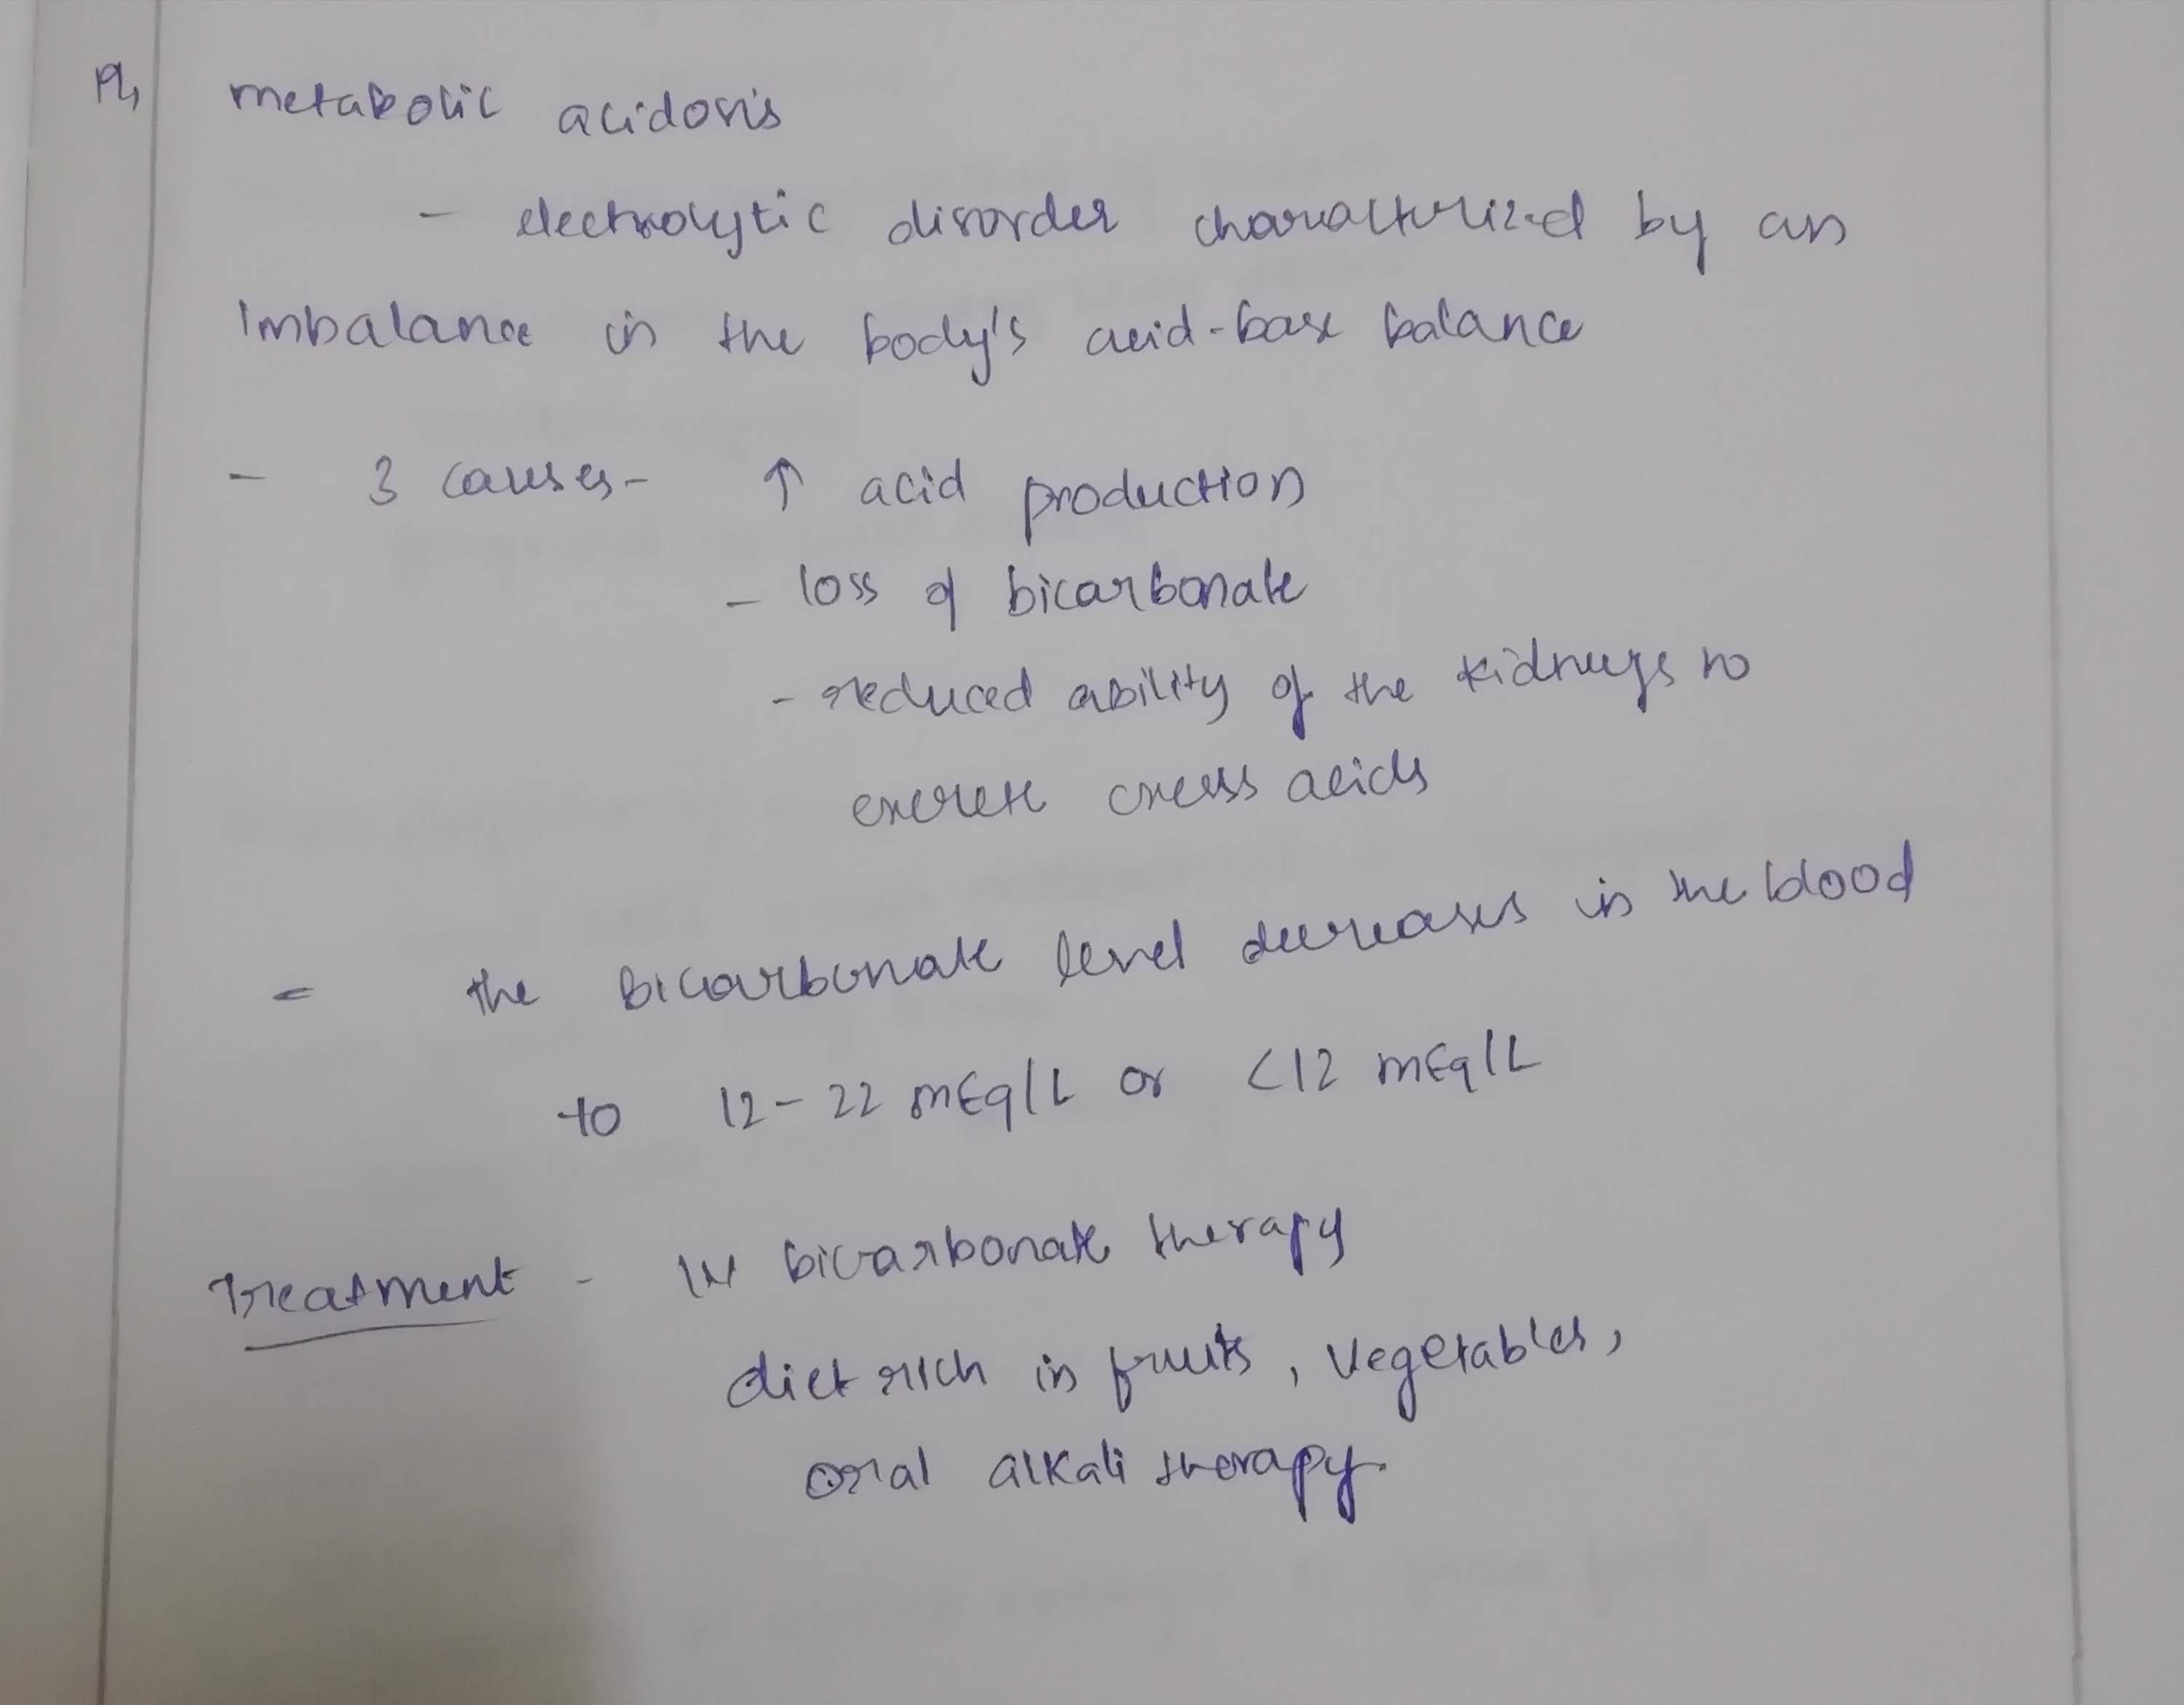 metabolic acidosis
- electrolytic disorder characterized by an
imbalance in the body's acid-base balance
- 3 causes - ↑ acid production
- loss of bicarbonate
- reduced ability of the kidneys to
excrete excess acids
- the bicarbonate level decreases in the blood
to 12-22 mEq/L or <12 mEq/L
Treatment - IV bicarbonate therapy
diet rich in fruits, vegetables,
oral alkali therapy.